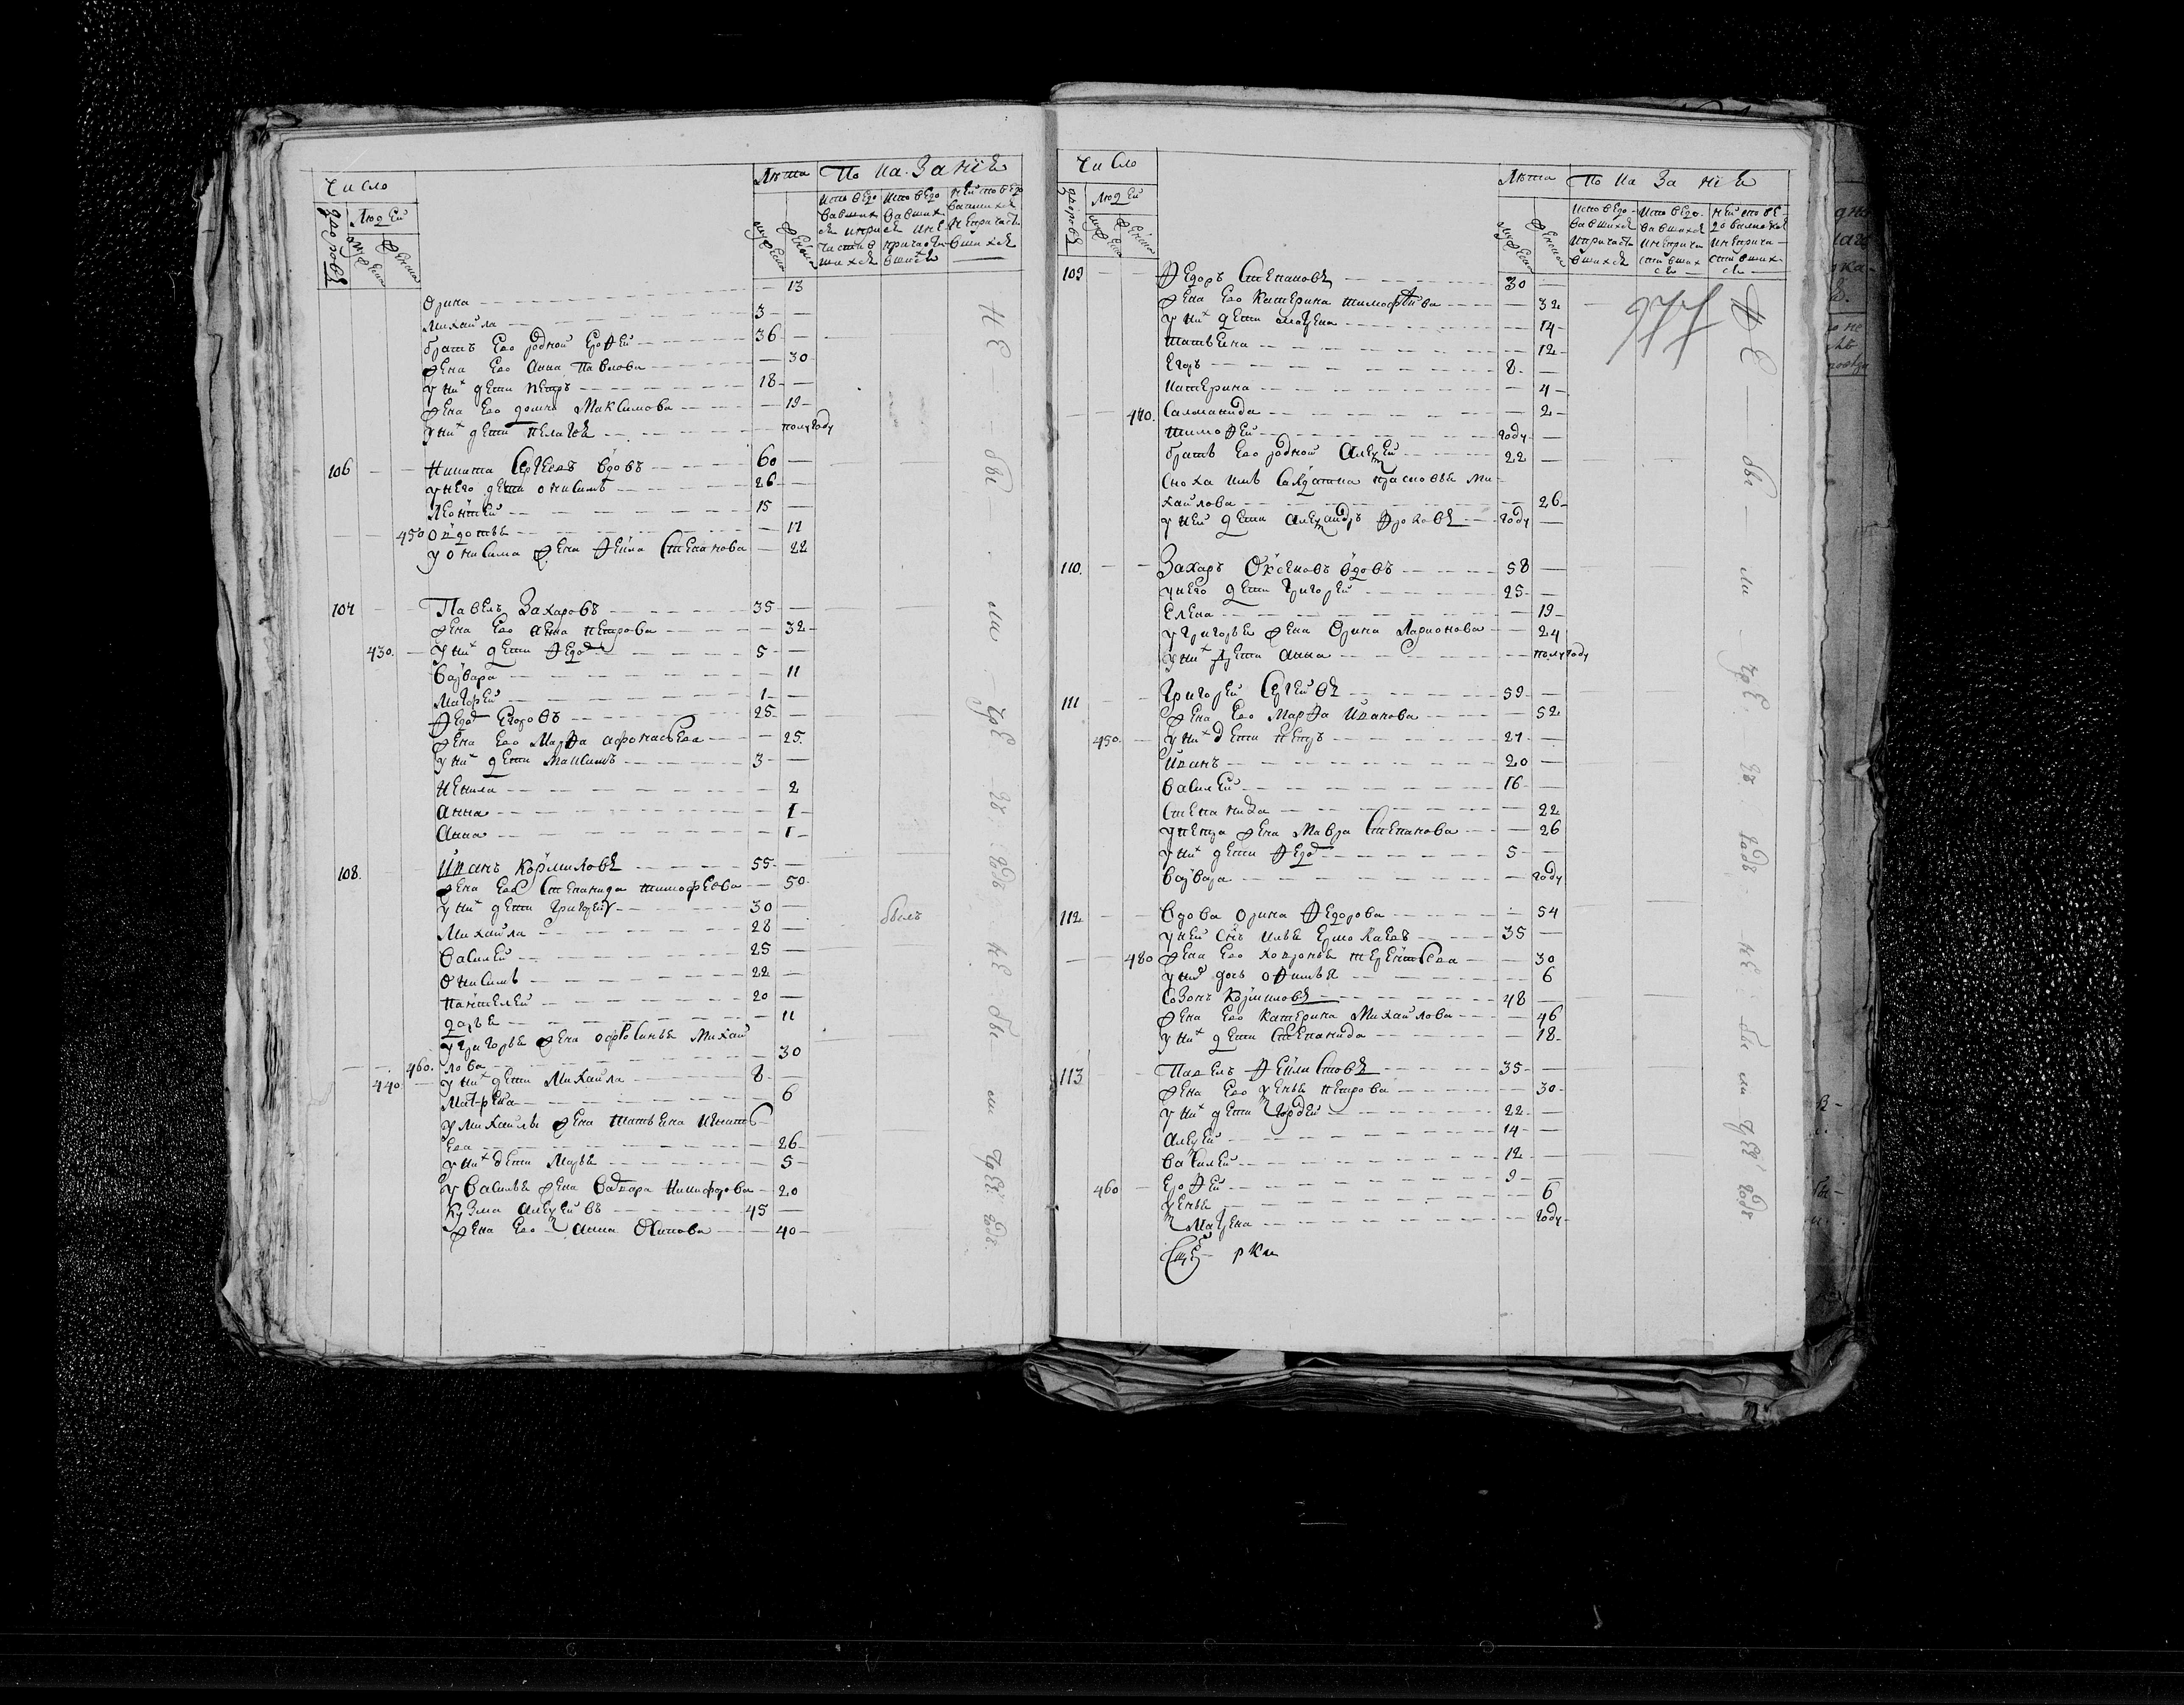 Число
Лѣта
Показанiе
дворовъ
Людей
мужеска
женска
мужеска
женска
Орина 13
Михайла 3
братъ Его родной Ерофей 36
жена Его Анна Павлова 30
у них дети Петръ 18
жена Его домна Максимова 19
у них дети Пелагея полугоду
106 Никита Сергеевъ вдовъ 60
у него дети онисимъ 26
Леонтей 15
450 Ѳедотья 17
у онисима жена Фекла Степанова 22
107 Павелъ Захаровъ 35
жена Его анна петрова 32
430. у них дети Федоръ 5
варвара 11
Матфей 1
Федоръ Егоровъ 25
жена Его Марфа афонасьева 25
у них дети Максимъ 3
Ненила 2
анна 1
Анна 1
108. Иванъ Кормиловъ 55
жена Его Степанида тимофеева 50
у них дети григорей 30
былъ
Михайла 28
василей 25
Онисимъ 22
пантелей 20
дарья 11
у григорья жена офросинья Михай
460. лова 30
440 у них дети Михайла 8
Матрена 6
у михайлы жена татьяна игнать
ева 26
у них дети Марья 5
у василья жена варвара Никифорова 20
кузма алексеевъ 45
жена Его анна Осипова 40
Не бы ли чрез год не бы ли чрез годъ
Число
Лѣта
По ка за нiе
дворовъ
Людей
мужеска
женска
мужеска
женска
109 Федоръ Степановъ 30
жена Его Катерина тимофѣива 32
у них дети матрена 14
татьяна 12
Егоръ 8
Катерина 4
470. Саломанида 2
тимофей году
братъ Его родной алексей 22
Сноха имъ Салдатка прасковья Ми
хайлова 26
у ней дети александръ фроловъ году
110. Захаръ вдовъ 58
у него дети григорей 25
Елена 19
у григорья жена Орина Ларионова 24
у них дети анна полугоду
111 Григорей Сергеивъ 59
жена Его Марфа Иванова 52
450 у них дети петръ 27
Иванъ 20
василей 16
Степанида 22
у петра жена Мавра Степанова 26
у них дети Федоръ 5
варвара году
112 вдова орина Федорова 54
у ней Снъ илья Ермолаевъ 35
480 жена Его ховронья терентьева 30
у них дочь офимья 6
Созонъ Кормиловъ 48
жена Его катерина Михайлова 46
у них дети Степанида 18
113 Павелъ Феклистовъ 35
жена Его петрова 30
у них дети гордей 22
алексей 14
василей 12
460 Ерофей 9
6
Матрена году
Не бы ли чрез годъ не бы ли чрез годъ